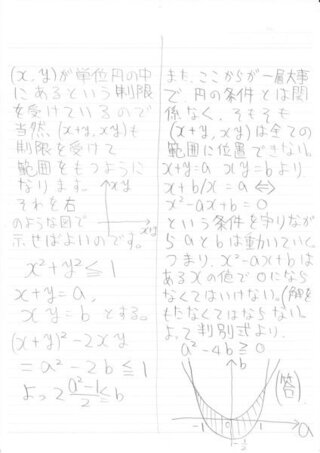 (x,y)が単位円の中
にあるという制限
を受けているので
当然、(x+y,xy)も
制限を受けて
範囲をもつように
なります。
それを右
のような図で
示せばよいのです。
xy
x²+y²≦1
x+y=a,
xy=bとする。
(x+y)²-2xy
=a²-2b≦1
よって a²-1/2≦b
また、ここからが一層大事
で、円の条件とは関
係なく、そもそも
(x+y,xy)は全ての
範囲に位置できない。
x+y=a xy=bより
x+b/x=a⇔
x²-ax+b=0
という条件を守りなが
らaとbは動いていく。
つまり、x²-ax+bは
あるxの値で0になら
なくてはいけない。(解を
もたなくてはならない。)
よって判別式より、
a²-4b≧0
b
(答)
-1
0
1
a
-1/2